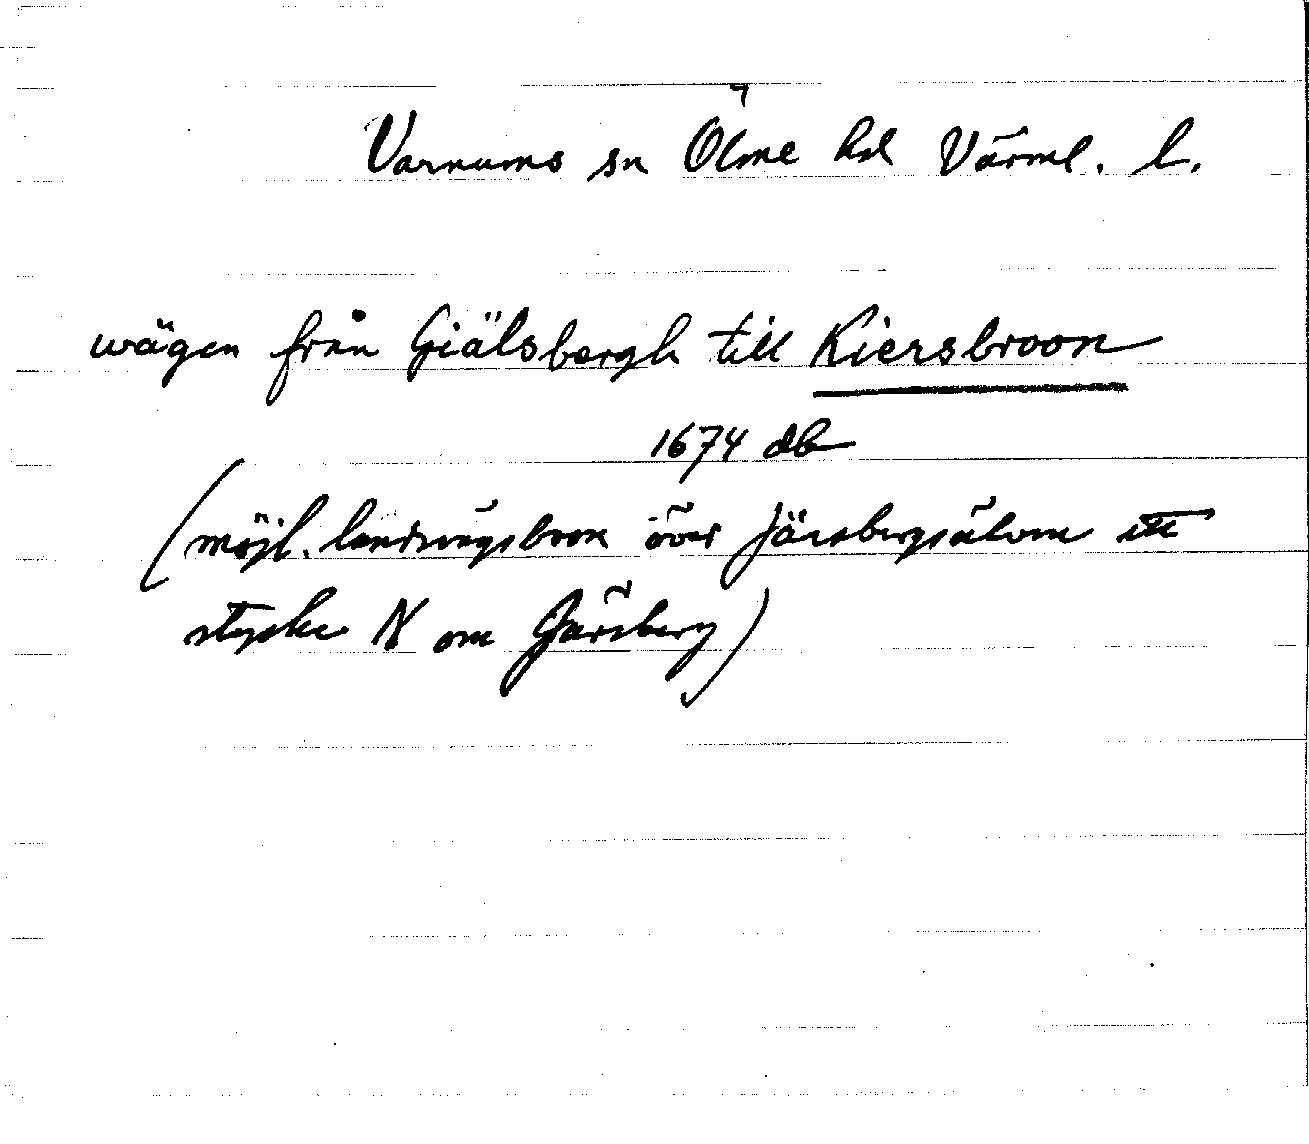 Varnums sn Ölme hd Värml. l.
wägen från Giälsbergh till Kiersbroon
1674 db
(möjl. landsvägsbron över Järsbergsälven ett
stycke N om Järsberg)